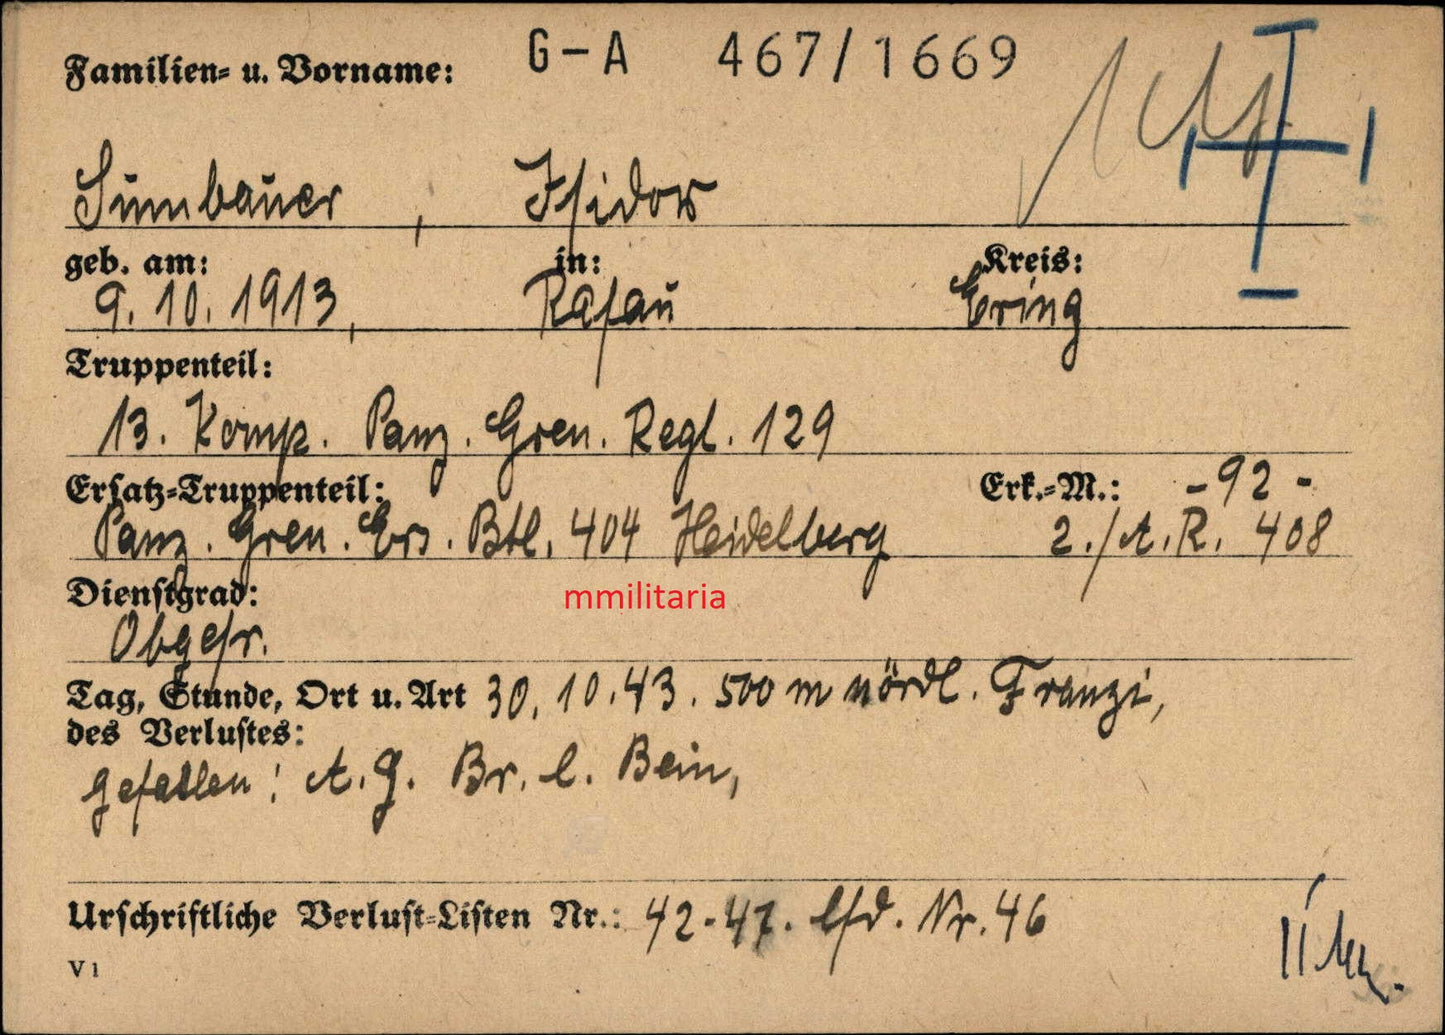 G-A 467/1669
Familien- u. Vorname:
Sumbauer, Isidor
geb. am: in: Kreis:
9. 10. 1913, Rafau Ering
Truppenteil:
13. Komp. Panz. Gren. Regt. 129
Ersatz-Truppenteil: Erk.-M.: -92-
Panz. Gren. Ers. Btl. 404 Heidelberg 2./A.R. 408
Dienstgrad:
Obgefr.
Tag, Stunde, Ort u. Art 30. 10. 43. 500 m nördl. Franzi,
des Verlustes:
gefallen: A. G. Br. l. Bein,
Urschriftliche Verlust-Listen Nr.: 42-47. lfd. Nr. 46
V 1
mmilitaria